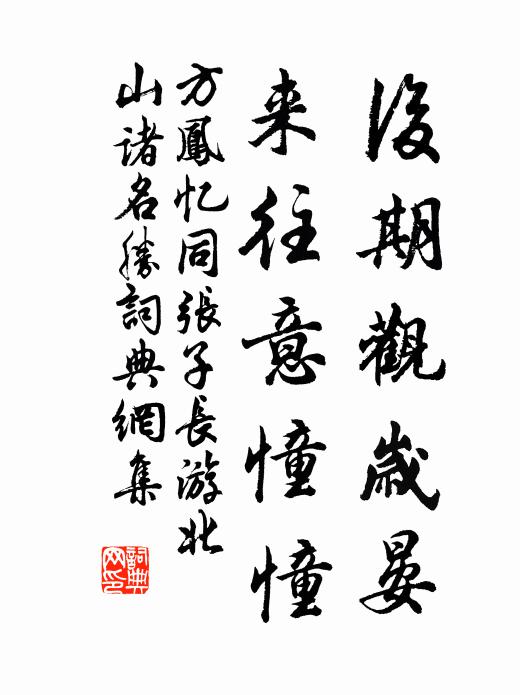 後期觀歲晏
来往意憧憧
方鳳忆同張子長游北
山诸名勝詞典網集
詞典网印